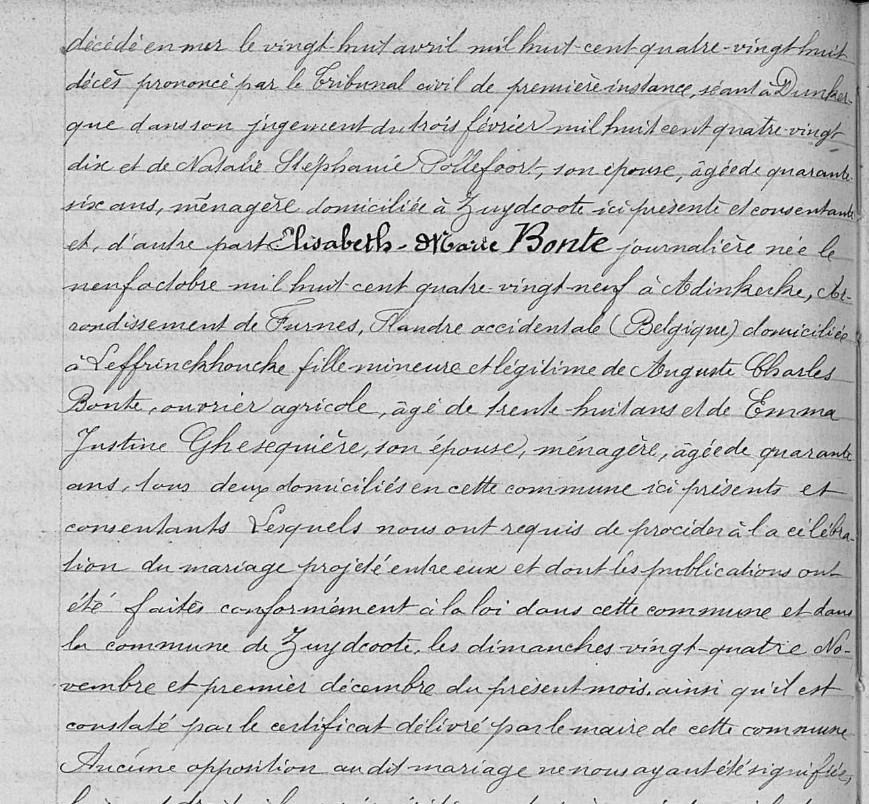 décédé en mer le vingt-huit avril mil huit-cent quatre-vingt huit
décès prononcé par le Tribunal civil de première instance, séant à Dunker-
que dans son jugement du trois février mil huit cent quatre-vingt
dix et de Natalie Stéphanie Pollefoort, son épouse, âgée de quarante
six ans, ménagère domiciliée à Zuydcoote ici présente et consentante
et, d'autre part Elisabeth-Marie Bonte journalière née le
neuf octobre mil huit-cent quatre-vingt-neuf à Adinkerke, Ar-
rondissement de Furnes, Flandre occidentale (Belgique) domiciliée
à Leffrinckhoucke fille mineure et légitime de Auguste Charles
Bonte, ouvrier agricole, âgé de trente-huit ans et de Emma
Justine Ghesequière, son épouse, ménagère, âgée de quarante
ans, tous deux domiciliés en cette commune ici présents et
consentants Lesquels nous ont requis de procéder à la célébra-
tion du mariage projeté entre eux et dont les publications ont
été faites conformément à la loi dans cette commune et dans
la commune de Zuydcoote, les dimanches vingt-quatre No-
vembre et premier décembre du présent mois, ainsi qu'il est
constaté par le certificat délivré par le maire de cette commune
Aucune opposition au dit mariage ne nous ayant été signifiée,